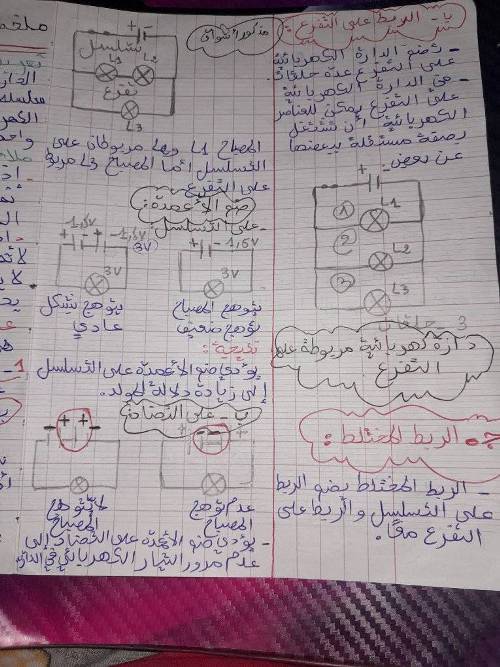 ب - الربط على التفرع :
- تضم الدارة الكهربائية
على التفرع عدة حلقات
- في الدارة الكهربائية
على التفرع يمكن للعناصر
الكهربائية أن تشتغل
بصفة مستقلة بعضها
عن بعض.
+ -
1
L1
2
L2
3
L3
3 حلقات
دارة كهربائية مربوطة على
التفرع
ج. الربط المختلط :
- الربط المختلط يضم الربط
على التسلسل والربط على
التفرع معًا.
+ -
تسلسل
L1 L2
تفرع
L3
المصباح L1 و L2 مربوطان على
التسلسل أما المصباح L3 مربوط
على التفرع
ضم الأعمدة :
- على التسلسل :
+ - 1,5V
3V
+ - 1,5V + - 1,5V
(3V)
3V
يتوهج المصباح
توهج ضعيف
يتوهج بشكل
عادي
نتيجة :
يؤدي ضم الأعمدة على التسلسل
إلى زيادة دلالة المولد.
ب - على التضاد :
+ - - +
- + + -
عدم توهج
المصباح
لا يتوهج
المصباح
- يؤدي ضم الأعمدة على التضاد إلى
عدم مرور التيار الكهربائي في الدارة